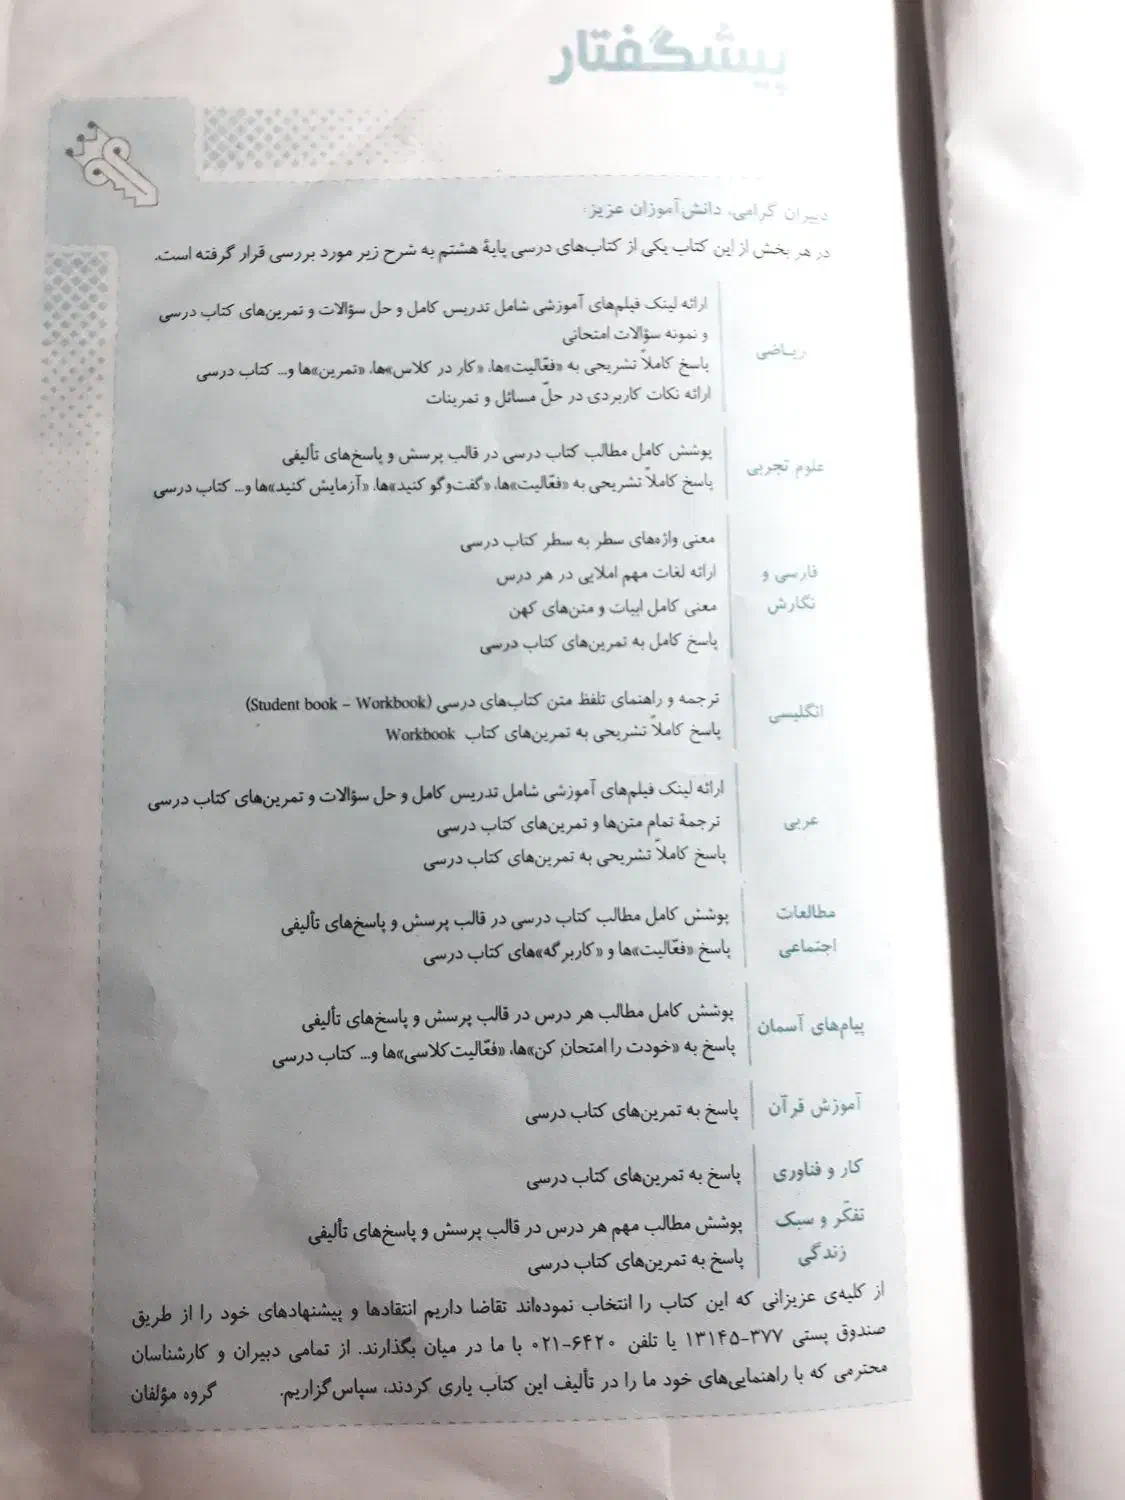 پیشگفتار
دبیران گرامی، دانش‌آموزان عزیز:
در هر بخش از این کتاب یکی از کتاب‌های درسی پایهٔ هشتم به شرح زیر مورد بررسی قرار گرفته است.
ریاضی
ارائه لینک فیلم‌های آموزشی شامل تدریس کامل و حل سؤالات و تمرین‌های کتاب درسی
و نمونه سؤالات امتحانی
پاسخ کاملاً تشریحی به «فعّالیت»ها، «کار در کلاس»ها، «تمرین»ها و... کتاب درسی
ارائه نکات کاربردی در حلّ مسائل و تمرینات
علوم تجربی
پوشش کامل مطالب کتاب درسی در قالب پرسش و پاسخ‌های تألیفی
پاسخ کاملاً تشریحی به «فعّالیت»ها، «گفت‌وگو کنید»ها، «آزمایش کنید»ها و... کتاب درسی
فارسی و
نگارش
معنی واژه‌های سطر به سطر کتاب درسی
ارائه لغات مهم املایی در هر درس
معنی کامل ابیات و متن‌های کهن
پاسخ کامل به تمرین‌های کتاب درسی
انگلیسی
ترجمه و راهنمای تلفظ متن کتاب‌های درسی (Student book – Workbook)
پاسخ کاملاً تشریحی به تمرین‌های کتاب Workbook
عربی
ارائه لینک فیلم‌های آموزشی شامل تدریس کامل و حل سؤالات و تمرین‌های کتاب درسی
ترجمهٔ تمام متن‌ها و تمرین‌های کتاب درسی
پاسخ کاملاً تشریحی به تمرین‌های کتاب درسی
مطالعات
اجتماعی
پوشش کامل مطالب کتاب درسی در قالب پرسش و پاسخ‌های تألیفی
پاسخ «فعّالیت»ها و «کاربرگه»های کتاب درسی
پیام‌های آسمان
پوشش کامل مطالب هر درس در قالب پرسش و پاسخ‌های تألیفی
پاسخ به «خودت را امتحان کن»ها، «فعّالیت کلاسی»ها و... کتاب درسی
آموزش قرآن
پاسخ به تمرین‌های کتاب درسی
کار و فناوری
پاسخ به تمرین‌های کتاب درسی
تفکّر و سبک
زندگی
پوشش مطالب مهم هر درس در قالب پرسش و پاسخ‌های تألیفی
پاسخ به تمرین‌های کتاب درسی
از کلیه‌ی عزیزانی که این کتاب را انتخاب نموده‌اند تقاضا داریم انتقادها و پیشنهادهای خود را از طریق
صندوق پستی ۳۷۷-۱۳۱۴۵ یا تلفن ۶۴۲۰-۰۲۱ با ما در میان بگذارند. از تمامی دبیران و کارشناسان
محترمی که با راهنمایی‌های خود ما را در تألیف این کتاب یاری کردند، سپاس‌گزاریم. گروه مؤلفان